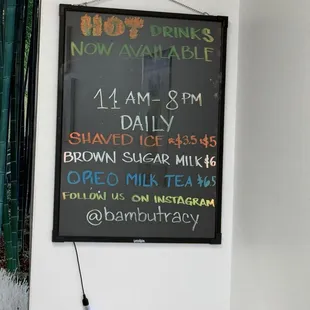 HOT DRINKS
NOW AVAILABLE
11 AM-8 PM
DAILY
SHAVED ICE $3.5 $5
BROWN SUGAR MILK $6
OREO MILK TEA $6.5
FOLLOW US ON INSTAGRAM
@bambutracy